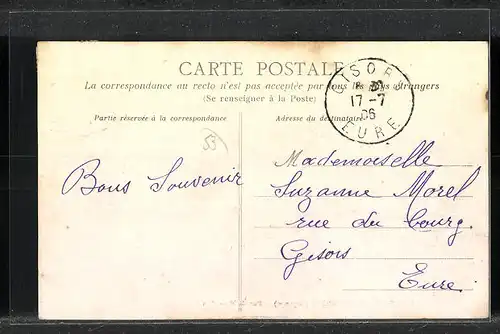 CARTE POSTALE
La correspondance au recto n'est pas acceptée par tous les pays étrangers
(Se renseigner à la Poste)
GISORS
17-7
06
EURE
Partie réservée à la correspondance
Adresse du destinataire
53
Bons Souvenir
Mademoiselle
Suzanne Morel
rue du bourg.
Gisors
Eure.